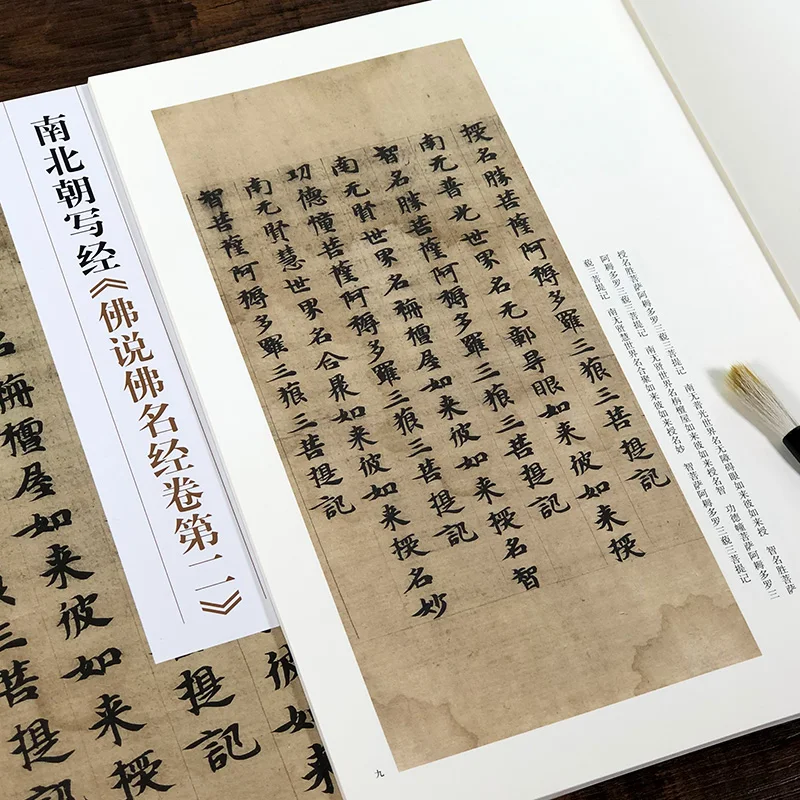 南北朝写经《佛说佛名经卷第二》
彼如来
三菩提記
名栴檀屋如来彼如来授
三菩提
授名勝菩薩阿耨多羅三藐三菩提記
南无普光世界名无鄣㝵眼如来彼如来授
智名勝菩薩阿耨多羅三藐三菩提記
南无賢世界名栴檀屋如来彼如来授名智
功德憧菩薩阿耨多羅三藐三菩提記
南无賢慧世界名合聚如来彼如来授名妙
智菩薩阿耨多羅三藐三菩提記
授名胜菩萨阿耨多罗三藐三菩提记　南无普光世界名无障碍眼如来彼如来授　智名胜菩萨
阿耨多罗三藐三菩提记　南无贤世界名栴檀屋如来彼如来授名智　功德幢菩萨阿耨多罗三
藐三菩提记　南无贤慧世界名合聚如来彼如来授名妙　智菩萨阿耨多罗三藐三菩提记
九